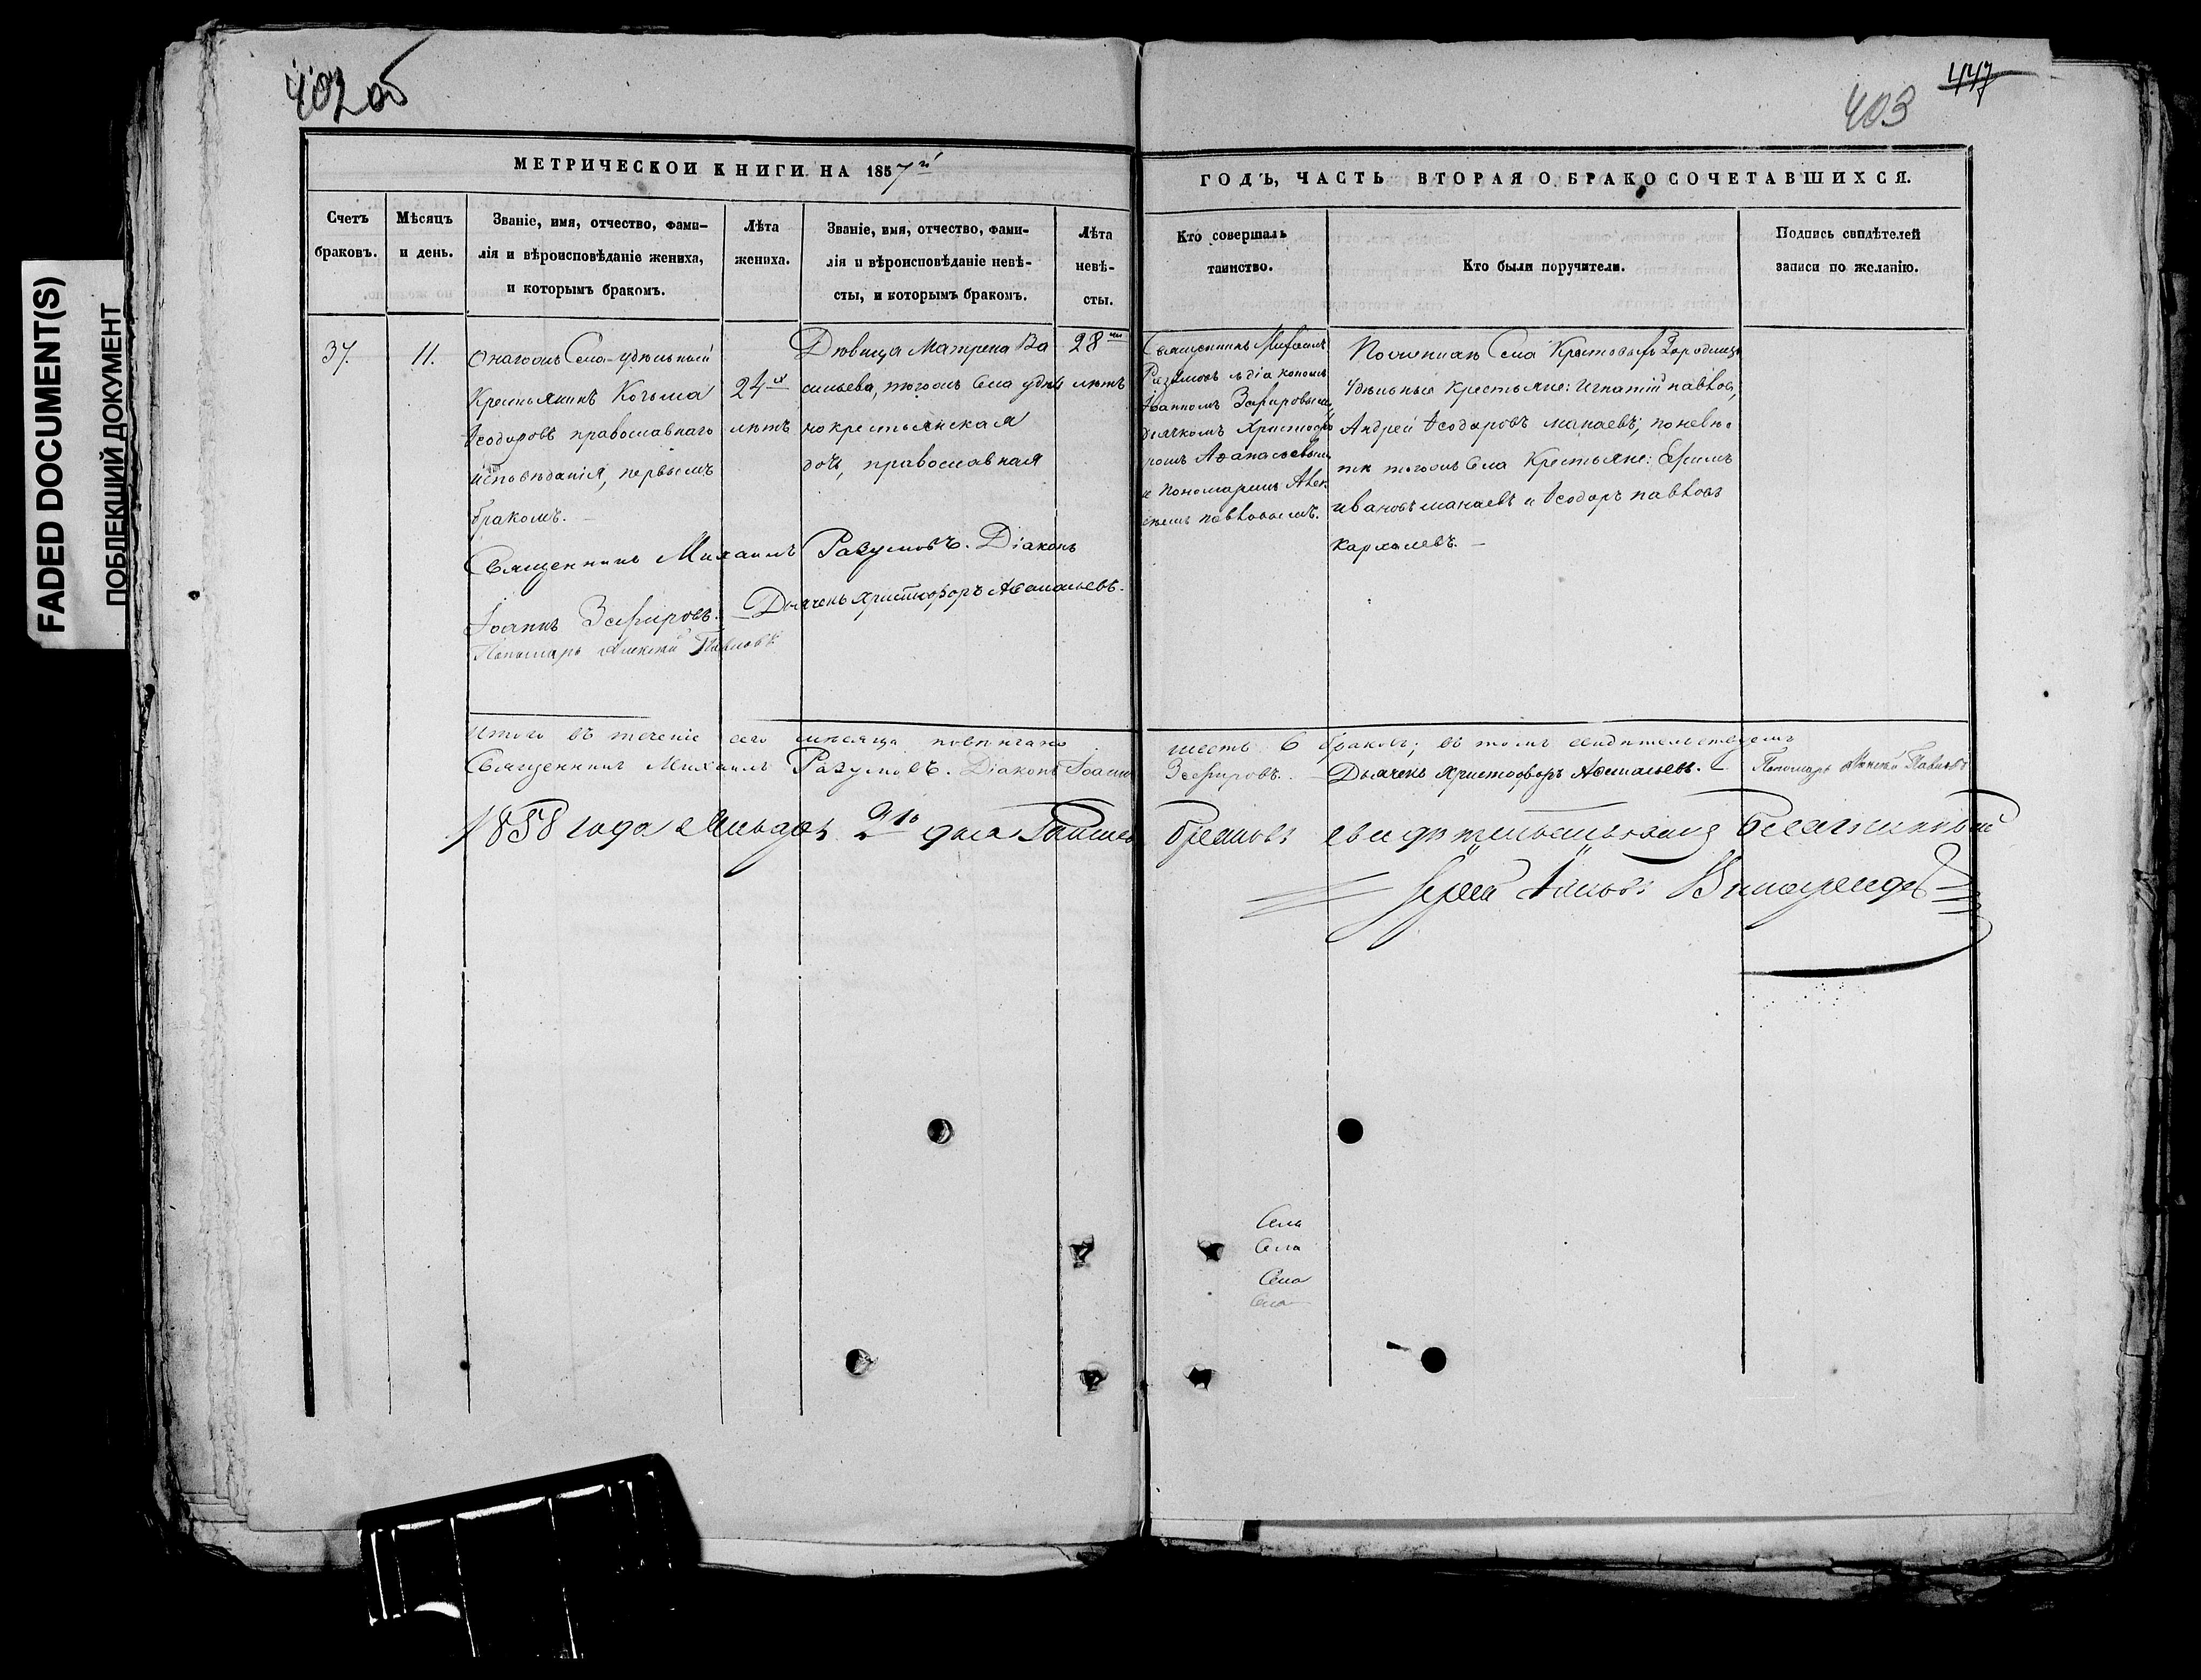 402 об
447
403
FADED DOCUMENT(S)
ПОБЛЕКЩИЙ ДОКУМЕНТ
МЕТРИЧЕСКОИ КНИГИ НА 1857й
ГОДЪ, ЧАСТЬ ВТОРАЯ О БРАКОСОЧЕТАВШИХСЯ.
Счетъ
браковъ.
Мѣсяцъ
и день.
Званіе, имя, отчество, фами-
лія и вѣроисповѣданіе жениха,
и которымъ бракомъ.
Лѣта
жениха.
Званіе, имя, отчество, фами-
лія и вѣроисповѣданіе невѣ-
сты, и которымъ бракомъ.
Лѣта
невѣ-
сты.
Кто совершалъ
таинство.
Кто были поручители.
Подпись свидѣтелей
записи по желанію.
37.
11.
Села удѣльный
Крестьянинъ Козьма
Ѳеодоровъ православнаго
исповѣданія, первымъ
бракомъ.
24х
лѣтъ
Дѣвица Матрена Ва
сильева, тогожъ Села удѣл
но крестьянская
дочь, православная
28ми
лѣтъ
Священникъ Михаилъ
Разумовъ съ діакономъ
Іоанномъ Зефировымъ,
дьячкомъ Христофо
ромъ Аѳанасьевымъ
и пономаремъ Алек
сѣемъ Павловымъ.
По женихѣ Села Крестовыхъ Городищъ
Удѣльные крестьяне: Игнатій Павловъ,
Андрей Ѳеодоровъ манаевъ; по невѣс
тѣ тогожъ Села Крестьяне: Ефимъ
Ивановъ манаевъ и Ѳеодоръ павловъ
Священникъ Михаилъ Разумовъ. Діаконъ
Іоаннъ Зефировъ. Дьячекъ Христофоръ Аѳанасьевъ.
Пономарь Алексѣй Павловъ
Итого въ теченіе сего мѣсяца повѣнчано шесть 6 браковъ; въ томъ свидѣтельствуемъ
Священникъ Михаилъ Разумовъ. Діаконъ Іоаннъ Зефировъ. Дьячекъ Христофоръ Аѳанасьевъ. Пономарь Алексѣй Павловъ
1858 года 21го дня свидѣтельствовалъ Благочинный
Іерей
Села
Села
Села
Села